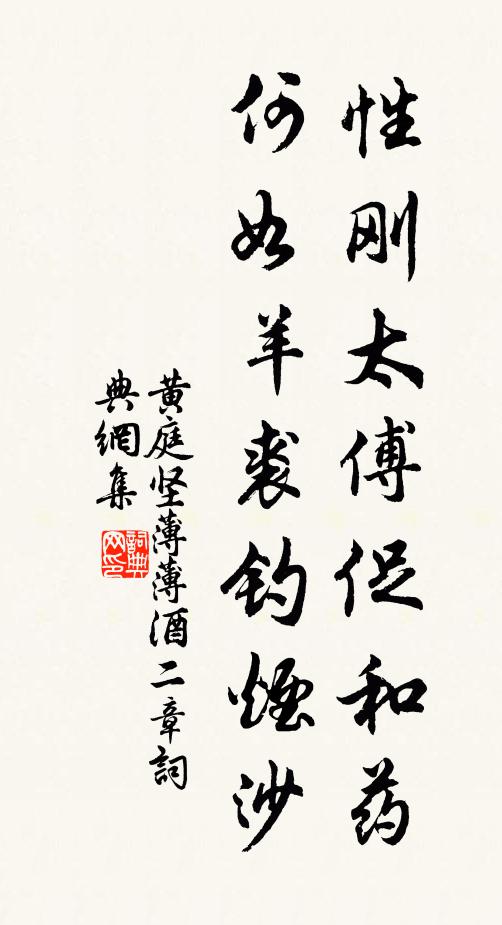 性刚太傅促和药
何如羊裘钓烟沙
黄庭坚薄薄酒二章詞
典網集
詞典
网印